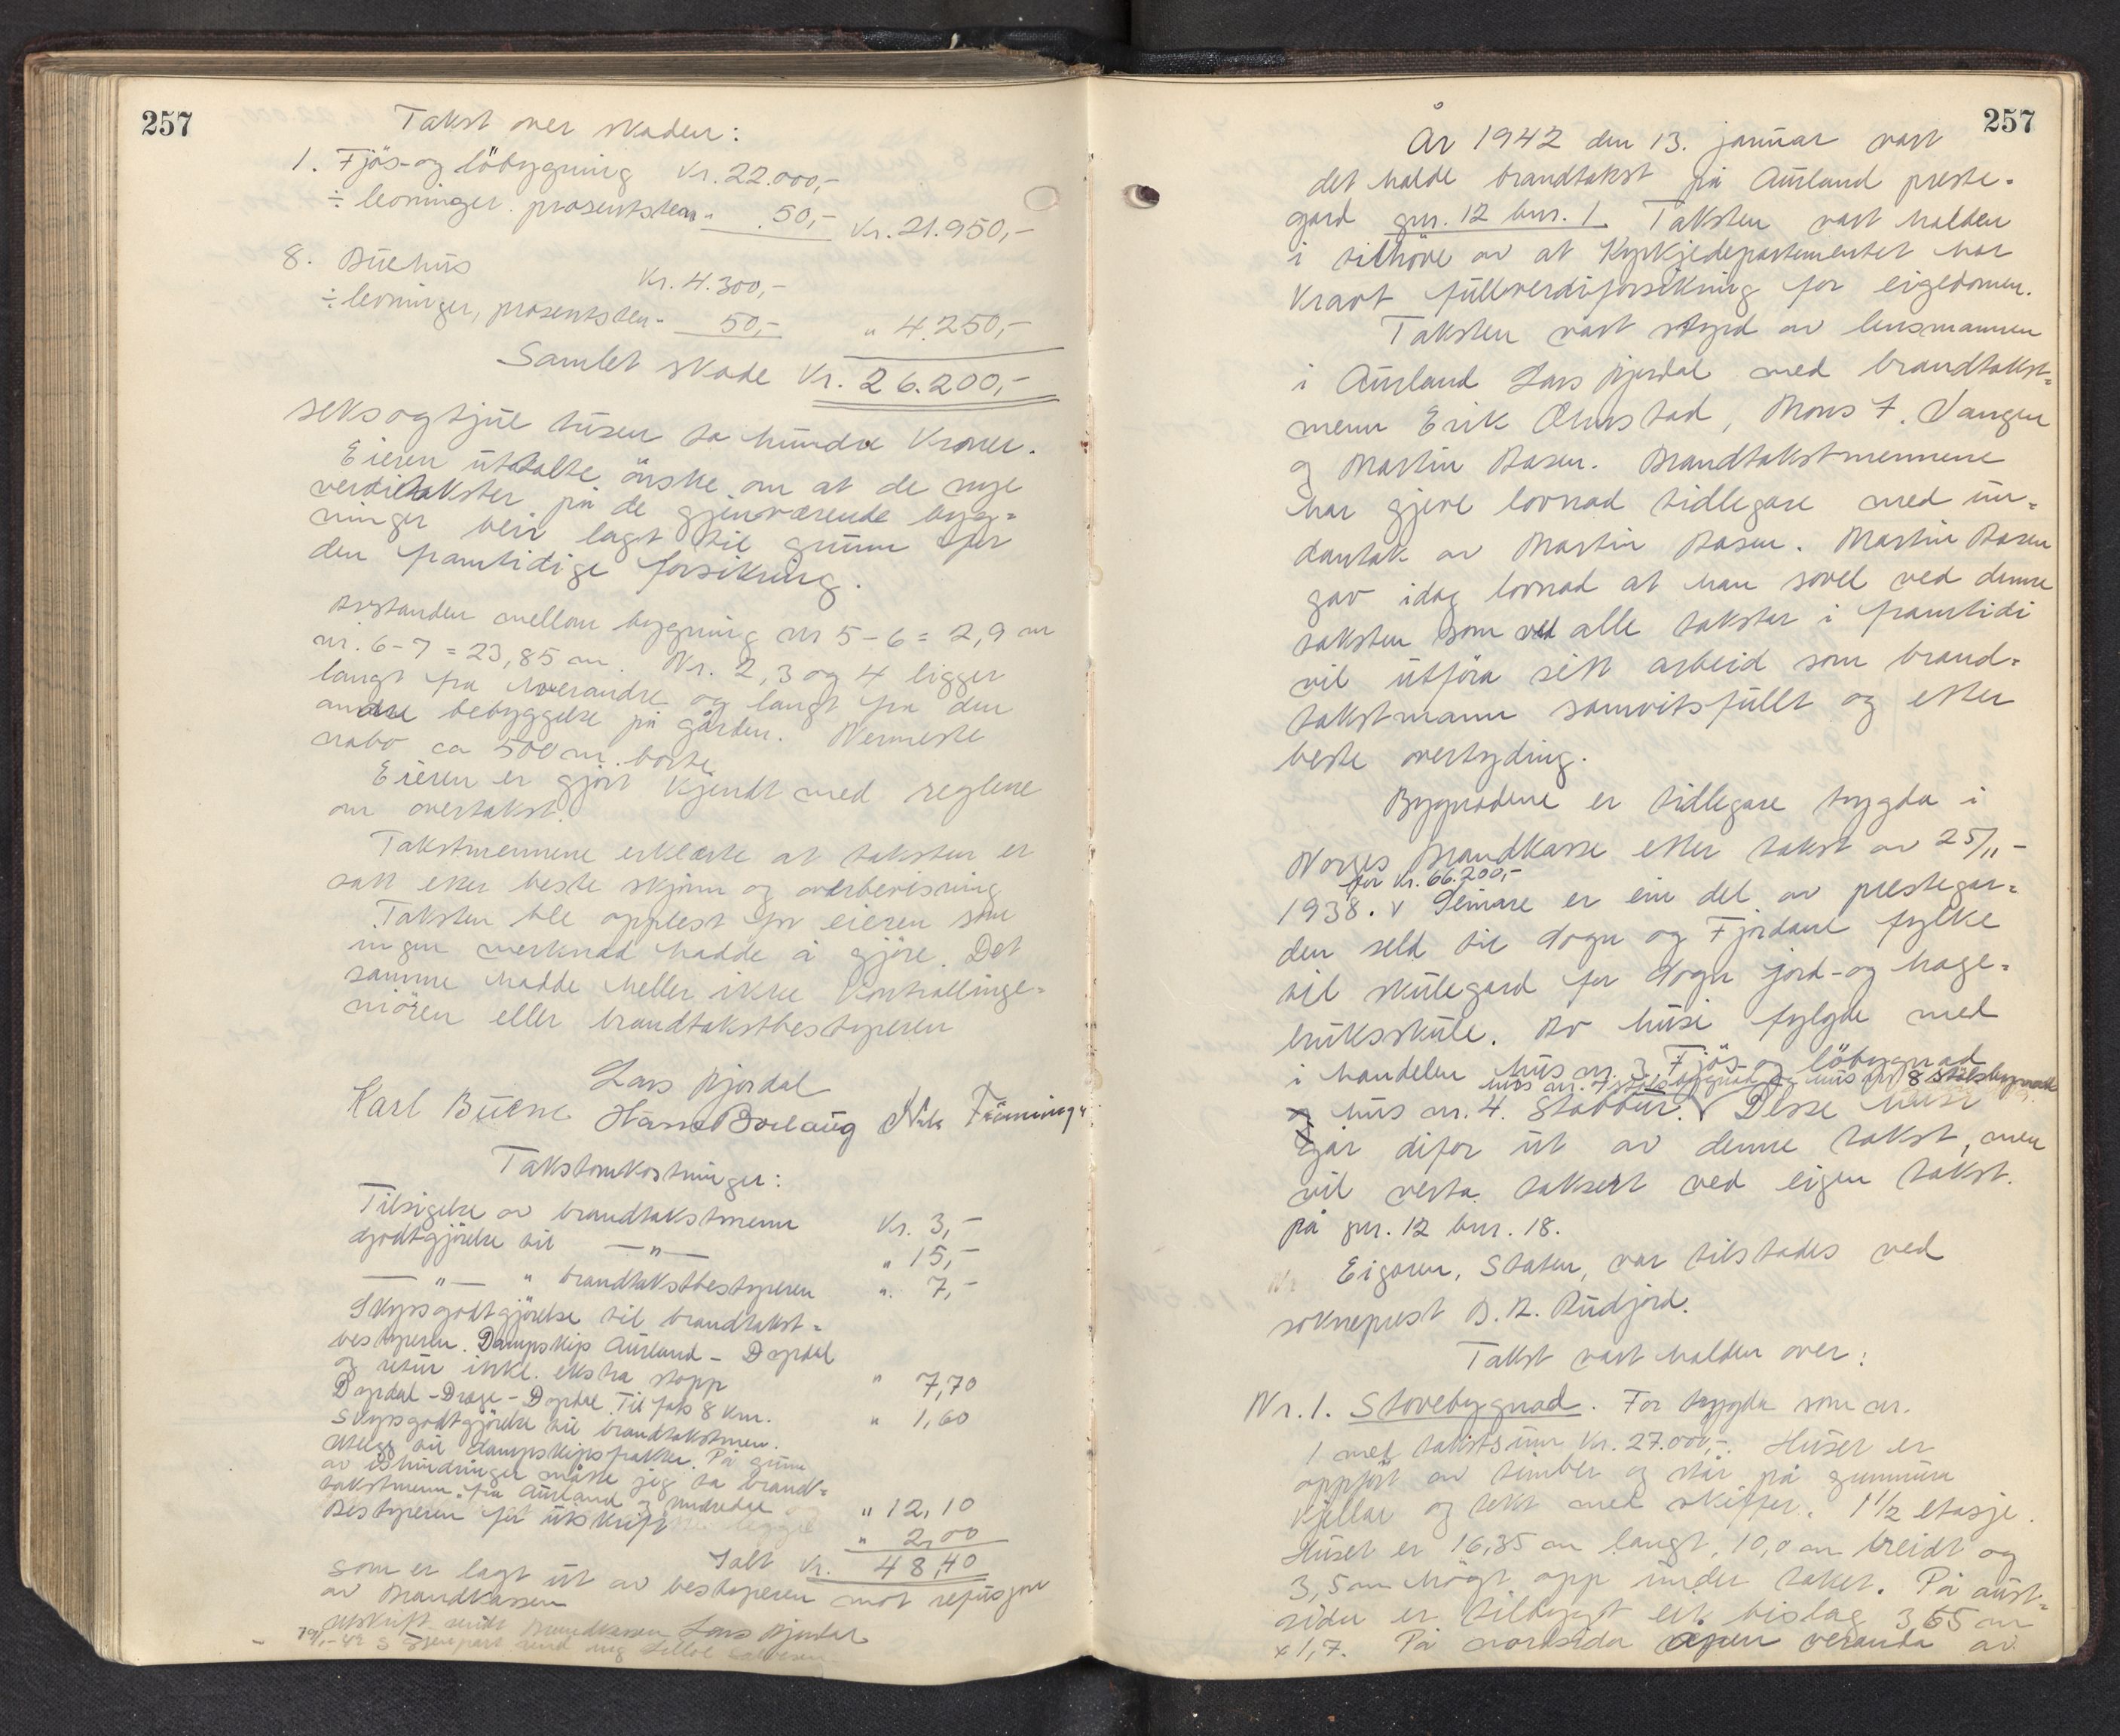 257
Takst over skaden:
1. Fjös- og löbygning Kr. 22.000,-
÷ levninger. prosentsten " 50,- Kr. 21.950,-
8. Buehus Kr. 4.300,-
÷ levninger, prosentsten - 50,- " 4.250,-
Samlet skade Kr. 26.200,-
seksogtjue tusen to hundre Kroner.
Eieren uttalte önske om at de nye
verditakster på de gjenværende byg=
ninger blir lagt til grunn for
den framtidige forsikring.
Avstanden mellom bygning nr 5 - 6 = 2,9 m
nr. 6-7 = 23,85 m. Nr. 2, 3 og 4 ligger
langt fra hverandre og langt fra den
andre bebyggelse på gården. Nermeste
nabo ca 500 m. borte.
Eieren er gjort kjendt med reglene
om overtakst.
Takstmennene erklærte at taksten er
satt etter beste skjönn og overbevisning
Taksten ble opplest for eieren som
ingen merknad hadde å gjöre. Det
samme hadde heller ikke kontrollinge=
niören eller brandtakstbestyreren
Lars Bjørdal
Karl Buene Hans Boelaug Nils Frönningen
Takstomkostninger:
Tilsigelse av brandtakstmenn Kr. 3,-
Godtgjörelse til —"— " 15,-
—"— " brandtakstbestyreren " 7,-
Skyssgodtgjörelse til brandtakst=
bestyreren. Dampskip Aurland - Dyrdal
og retur inkl. ekstra stopp " 7,70
Dyrdal - Drage - Dyrdal. Til fots 8 km. " 1,60
Skyssgodtgjörelse til brandtakstmen.
Utlegg til dampskipsfrakter. På grunn
av ishindringer måtte jeg ta brand=
takstmenn fra Aurland og Undredal " 12,10
Bestyreren for utskrift " 2,00
Ialt Kr. 48,40
som er lagt ut av bestyreren mot refusjon
av Brandkassen
Utskrift sendt Brandkassen Lars Bjørdal
257
År 1942 den 13. januar vart
det halde brandtakst på Aurland preste=
gard gnr. 12 bnr. 1. Taksten vart halden
i tilhöve av at Kyrkjedepartementet har
kravt fullverdiforsikring for eigedomen.
Taksten vart styrd av lensmannen
i Aurland Lars Bjørdal med brandtakst=
menn Erik Ohnstad, Mons F. Vangen
og Martin Åsen. Brandtakstmennene
har gjeve lovnad tidlegare med un=
dantak av Martin Åsen. Martin Åsen
gav idag lovnad at han sovel ved denne
taksten som ved alle takstar i framtidi
vil utföra sitt arbeid som brand=
takstmann samvitsfullt og etter
beste overtyding.
Bygnadene er tidlegare trygda i
Norges Brandkasse etter takst av 25/11-
for Kr. 66.200,-
1938. v Seinare er ein del av prestegar=
den seld til Sogn og Fjordane fylke
til skulegard for Sogn jord- og hage=
bruksskule. Av husi fylgde med
i handelen hus nr. 3, Fjös- og löbygnad
hus nr. 7 stalsbygnad og hus nr 8 stalsbygnad
og hus nr. 4. Stabbur. v Desse husi
gjar difor ut av denne takst, men
vil verta taksert ved eigen takst.
på gnr. 12 bnr. 18.
Eigaren, Staten, var tilstades ved
sokneprest B. R. Rudjord.
Takst vart halden over:
Nr. 1. Stovebygnad. For trygda som nr.
1 med takstsum Kr. 27.000,-. Huset er
oppfört av timber og står på grunnmur
kjellar og tekt med skiffer. 1 1/2 etasje.
Huset er 16,35 m langt, 10,0 m breidt og
3,5 m högt opp under taket. På aust=
sida er tilbygt eit bislag 3,65 m
x 1,7. På nordsida open veranda av